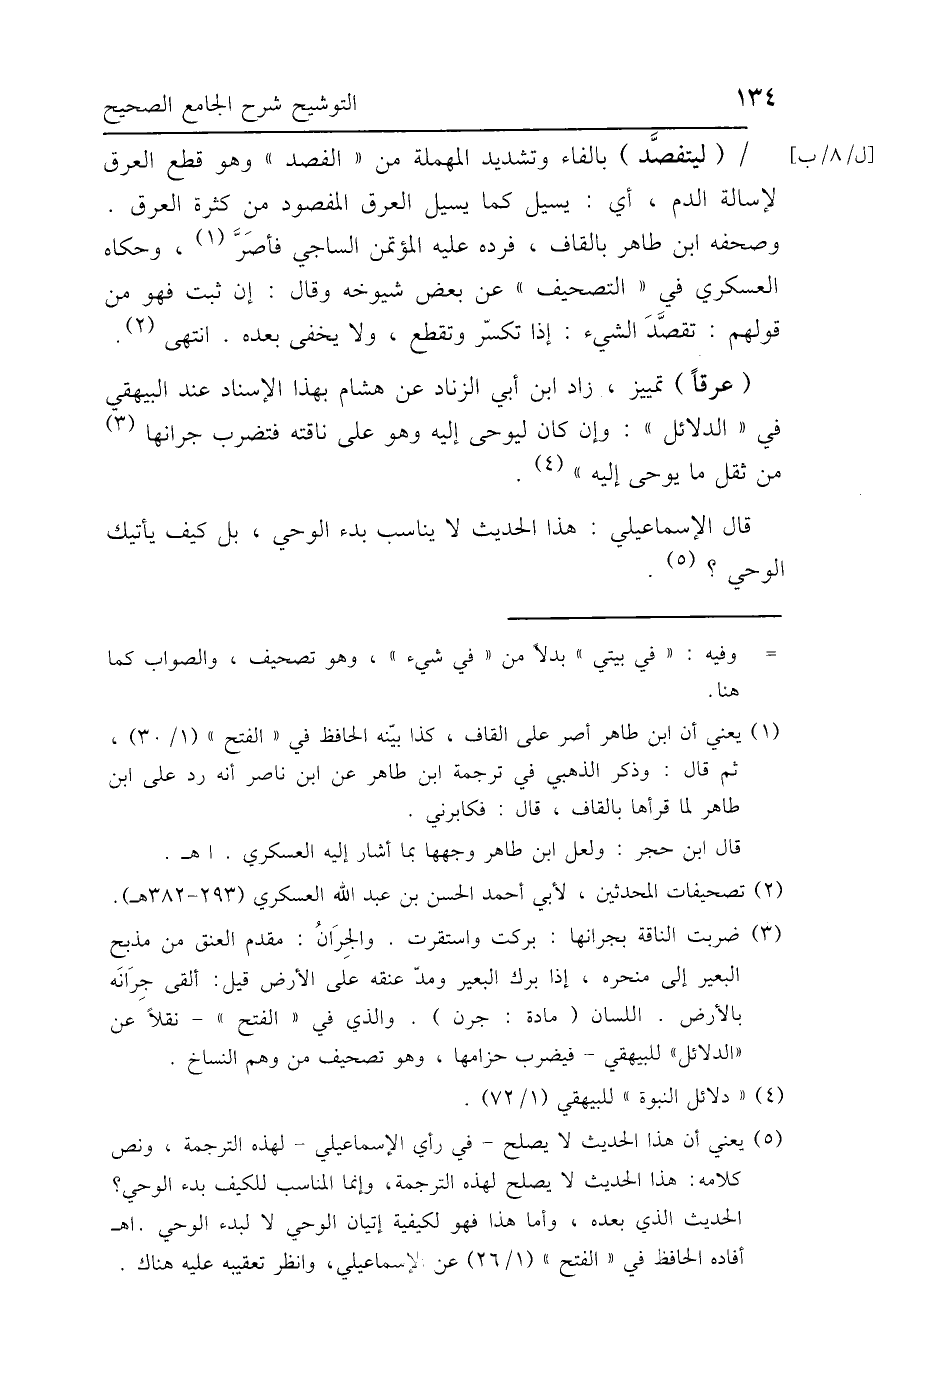 ١٣٤
التوشيح شرح الجامع الصحيح
[ل/٨/ب]
/ ( ليتفصَّد ) بالفاء وتشديد المهملة من « الفصد » وهو قطع العرق
لإسالة الدم ، أي : يسيل كما يسيل العرق المفصود من كثرة العرق .
وصحفه ابن طاهر بالقاف ، فرده عليه المؤتمن الساجي فأصَرَّ (١) ، وحكاه
العسكري في « التصحيف » عن بعض شيوخه وقال : إن ثبت فهو من
قولهم : تقصَّدَ الشيء : إذا تكسّر وتقطع ، ولا يخفى بعده . انتهى (٢).
( عرقاً ) تمييز ، زاد ابن أبي الزناد عن هشام بهذا الإسناد عند البيهقي
في « الدلائل » : وإن كان ليوحى إليه وهو على ناقته فتضرب جرانها (٣)
من ثقل ما يوحى إليه » (٤) .
قال الإسماعيلي : هذا الحديث لا يناسب بدء الوحي ، بل كيف يأتيك
الوحي ؟ (٥) .
= وفيه : « في بيتي » بدلاً من « في شيء » ، وهو تصحيف ، والصواب كما
هنا.
(١) يعني أن ابن طاهر أصر على القاف ، كذا بيّنه الحافظ في « الفتح » (١/ ٣٠) ،
ثم قال : وذكر الذهبي في ترجمة ابن طاهر عن ابن ناصر أنه رد على ابن
طاهر لما قرأها بالقاف ، قال : فكابرني .
قال ابن حجر : ولعل ابن طاهر وجهها بما أشار إليه العسكري . ا هـ .
(٢) تصحيفات المحدثين ، لأبي أحمد الحسن بن عبد الله العسكري (٢٩٣-٣٨٢هـ).
(٣) ضربت الناقة بجرانها : بركت واستقرت . والجِرَانُ : مقدم العنق من مذبح
البعير إلى منحره ، إذا برك البعير ومدّ عنقه على الأرض قيل: ألقى جِرَانَه
بالأرض . اللسان ( مادة : جرن ) . والذي في « الفتح » - نقلاً عن
«الدلائل» للبيهقي - فيضرب حزامها ، وهو تصحيف من وهم النساخ .
(٤) « دلائل النبوة » للبيهقي (١/ ٧٢) .
(٥) يعني أن هذا الحديث لا يصلح - في رأي الإسماعيلي - لهذه الترجمة ، ونص
كلامه: هذا الحديث لا يصلح لهذه الترجمة، وإنما المناسب للكيف بدء الوحي؟
الحديث الذي بعده ، وأما هذا فهو لكيفية إتيان الوحي لا لبدء الوحي .اهـ
أفاده الحافظ في « الفتح » (١/ ٢٦) عن الإسماعيلي، وانظر تعقيبه عليه هناك .